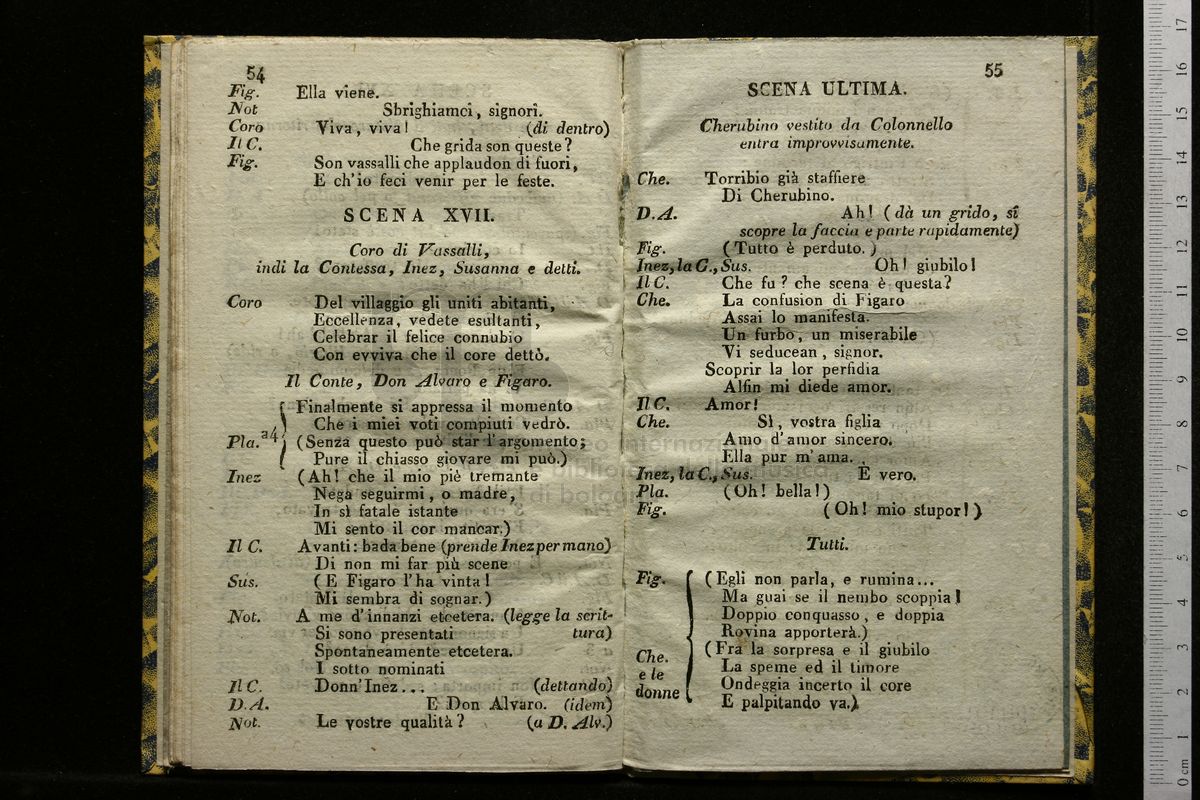 54
Fig. Ella viene.
Not Sbrighiamci, signori.
Coro Viva, viva! (di dentro)
Il C. Che grida son queste?
Fig. Son vassalli che applaudon di fuori,
E ch'io feci venir per le feste.
SCENA XVII.
Coro di Vassalli,
indi la Contessa, Inez, Susanna e detti.
Coro Del villaggio gli uniti abitanti,
Eccellenza, vedete esultanti,
Celebrar il felice connubio
Con evviva che il core dettò.
Il Conte, Don Alvaro e Figaro.
Finalmente si appressa il momento
Che i miei voti compiuti vedrò.
Pla. a4 (Senza questo può star l'argomento;
Pure il chiasso giovare mi può.)
Inez (Ah! che il mio piè tremante
Nega seguirmi, o madre,
In sì fatale istante
Mi sento il cor mancar.)
Il C. Avanti: bada bene (prende Inez per mano)
Di non mi far più scene
Sus. (E Figaro l'ha vinta!
Mi sembra di sognar.)
Not. A me d'innanzi etcetera. (legge la scrit-
Si sono presentati tura)
Spontaneamente etcetera.
I sotto nominati
Il C. Donn'Inez... (dettando)
D.A. E Don Alvaro. (idem)
Not. Le vostre qualità? (a D. Alv.)
55
SCENA ULTIMA.
Cherubino vestito da Colonnello
entra improvvisamente.
Che. Torribio già staffiere
Di Cherubino.
D.A. Ah! (dà un grido, si
scopre la faccia e parte rapidamente)
Fig. (Tutto è perduto.)
Inez, la C., Sus. Oh! giubilo!
Il C. Che fu? che scena è questa?
Che. La confusion di Figaro
Assai lo manifesta.
Un furbo, un miserabile
Vi seducean, signor.
Scoprir la lor perfidia
Alfin mi diede amor.
Il C. Amor!
Che. Sì, vostra figlia
Amo d'amor sincero.
Ella pur m'ama.
Inez, la C., Sus. È vero.
Pla. (Oh! bella!)
Fig. (Oh! mio stupor!)
Tutti.
Fig. (Egli non parla, e rumina...
Ma guai se il nembo scoppia!
Doppio conquasso, e doppia
Rovina apporterà.)
Che. e le donne (Fra la sorpresa e il giubilo
La speme ed il timore
Ondeggia incerto il core
E palpitando va.)